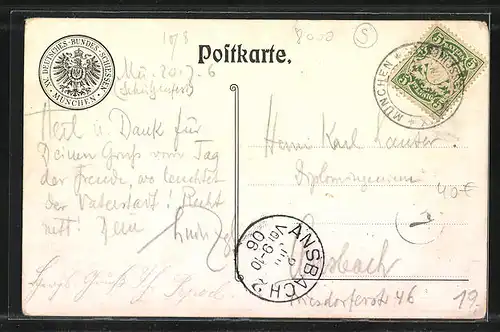 10/8
8000
S
XV. DEUTSCHES-BUNDES-SCHIESSEN
MÜNCHEN
Postkarte.
(Schützenfest)
5
MÜNCHEN
Heil u. Dank für
Deinen Gruß vom Tag
der Freude, wo leuchtet
der Vaterstadt! Recht
nett! Dein
Herrn Karl
Diplomingenieur
40€
I
ANSBACH 2
VOR 9-10
06
Ansbach
Triesdorferstr 46
19.-